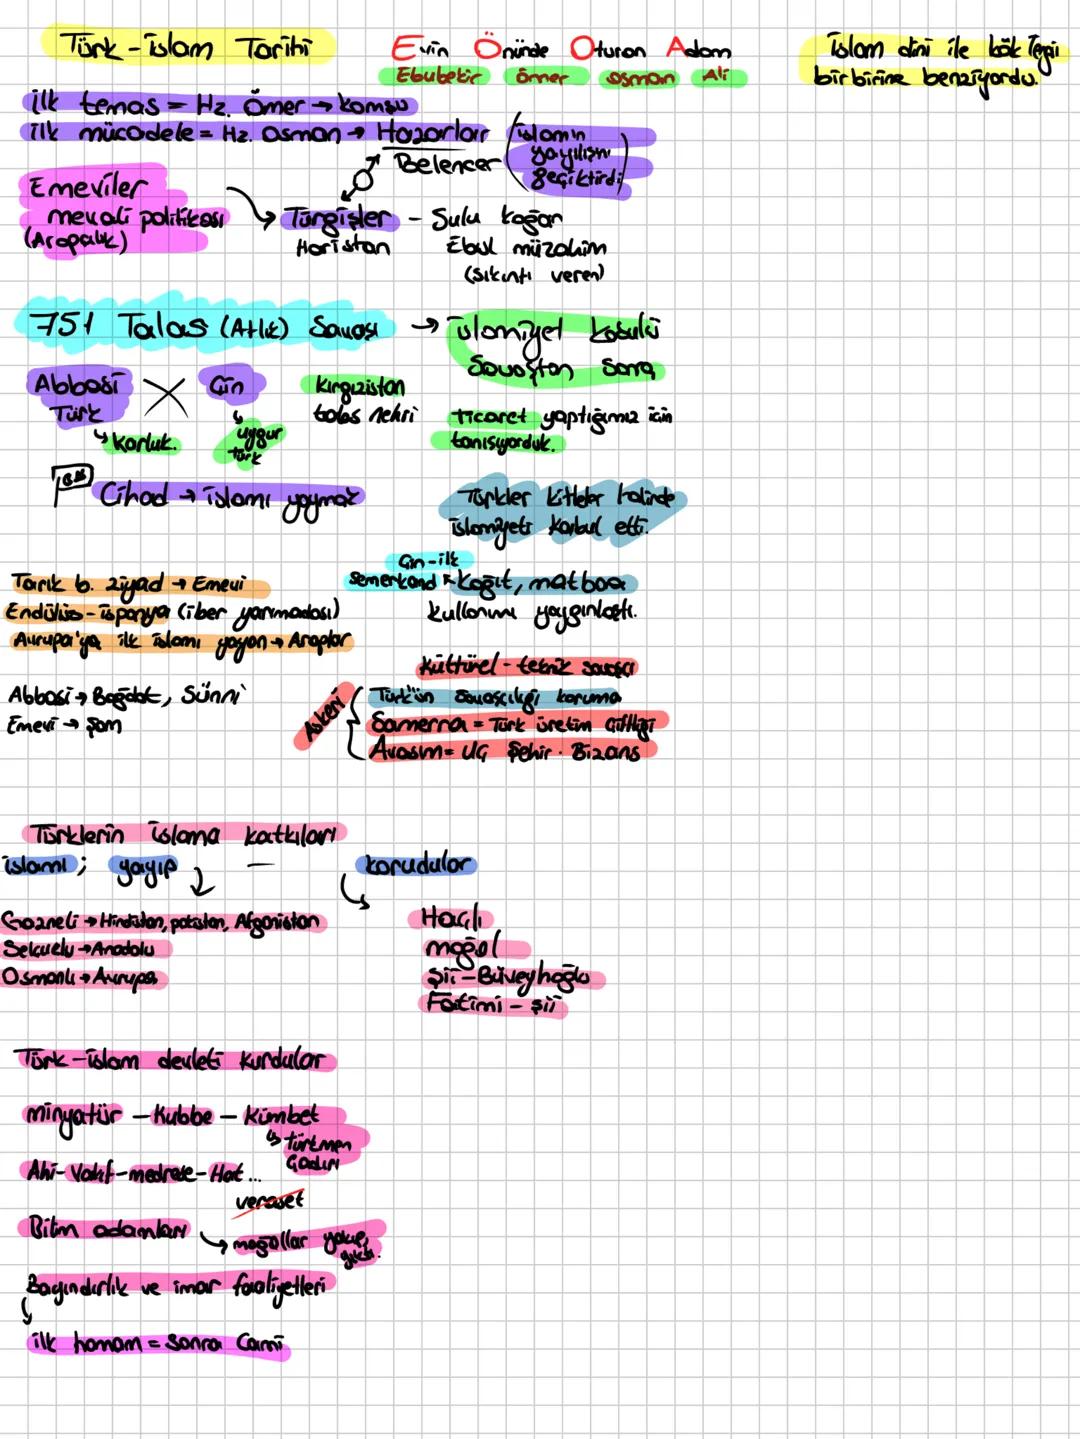 Türk-İslam Tarihi
Evin Önünde Oturan Adam
Ebubekir ömer osman Ali
islam dini ile kök Tengri
birbirine benziyordu.
ilk temas = Hz. Ömer → komşu
ilk mücadele = Hz. Osman → Hazarlar
Belencer
(islamın
yayılışını
geçiktirdi)
Emeviler
mevali politikası
(Arapalık)
Türgişler - Sulu kağan
Haristan
Ebul müzahim
(sıkıntı veren)
751 Talas (Atlık) Savaşı → islamiyet kabulü
Savaştan sonra
Abbasi X Çin
Türk
↳ Karluk.
↳ uygur
türk
Kırgızistan
talas nehri
ticaret yaptığımız için
tanışıyorduk.
Cihad → islamı yaymak
Türkler kitleler halinde
islamiyeti kabul etti.
Çin-ilk
Semerkand
Kağıt, matbaa
kullanımı yaygınlaştı.
Tarık b. ziyad → Emevi
Endülüs-ispanya (iber yarımadası)
Avrupa'ya ilk islamı yayan → Araplar
Kültürel-teknik savaşı
Abbasi → Bağdat, Sünni
Emevi → Şam
Askeri
Türk'ün savaşçılığı koruma
Samerra = Türk üretim çiftliği
Avasım = UÇ Şehir. Bizans
Türklerin islama katkıları
islamı; yayıp — korudular
Gazneli → Hindistan, pakistan, Afganistan
Selçuklu → Anadolu
Osmanlı → Avrupa
Haçlı
moğol
Şii-Büveyhoğlu
Fatimi - şii
Türk-islam devleti kurdular
minyatür - Kubbe - Kümbet
↳ türkmen
Çadırı
Ahi-Vakıf-medrese-Hat...
veraset
Bilim adamları
→ moğollar yakıp,
yıktı.
Bayındırlık ve imar faaliyetleri
ilk hamam = sonra Cami